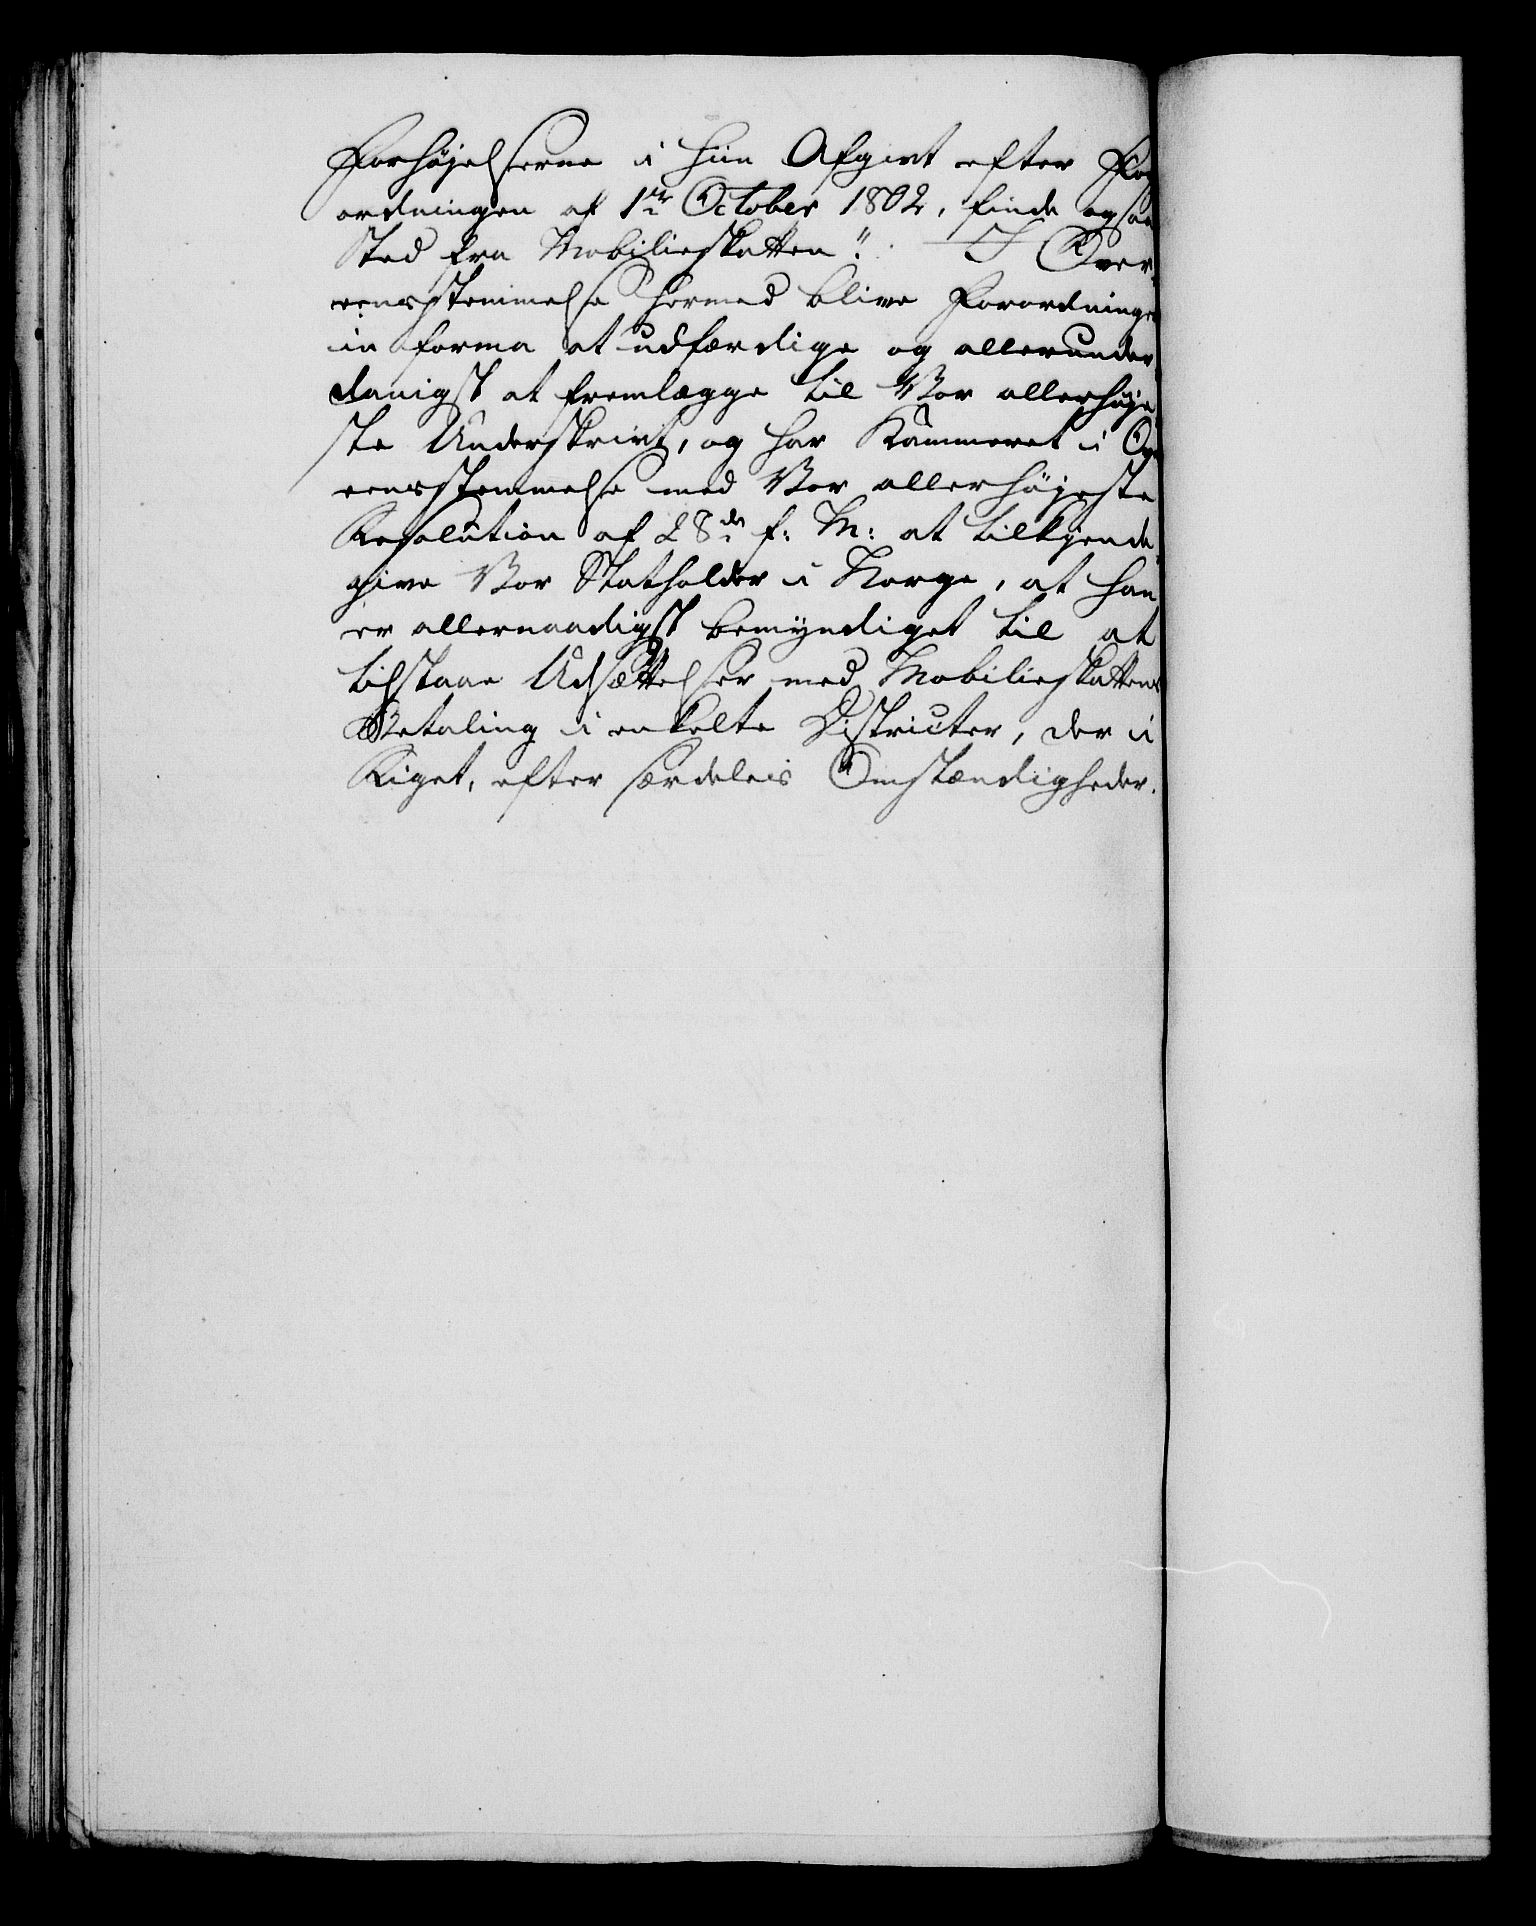 Forhøjelserne i hiin Afgivt efter For
ordningen af 1ste October 1802, finde ogsaa
Sted fra Mobilieskatten". I Over
eensstemmelse hermed blive Forordningen
in forma at udfærdige og allerunder
danigst at fremlægge til Vor allerhøje
ste Underskrivt, og har Kammeret i Ov
eensstemmelse med Vor allerhøjeste
Resolution af 28de f: M: at tilkjende
give Vor Statholder i Norge, at han
er allernaadigst bemyndiget til at
tilstaae Udsættelser med Mobilieskattens
Betaling i enkelte Districter, der i
Riget, efter særdeles Omstændigheder.